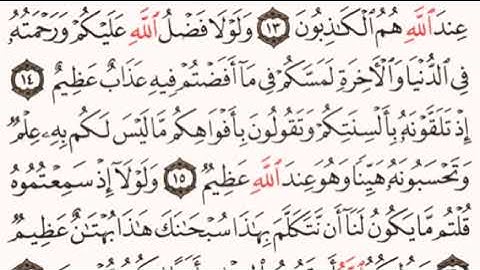 عِندَ ٱللَّهِ هُمُ ٱلْكَـٰذِبُونَ ١٣ وَلَوْلَا فَضْلُ ٱللَّهِ عَلَيْكُمْ وَرَحْمَتُهُۥ
فِى ٱلدُّنْيَا وَٱلْـَٔاخِرَةِ لَمَسَّكُمْ فِى مَآ أَفَضْتُمْ فِيهِ عَذَابٌ عَظِيمٌ ١٤
إِذْ تَلَقَّوْنَهُۥ بِأَلْسِنَتِكُمْ وَتَقُولُونَ بِأَفْوَاهِكُم مَّا لَيْسَ لَكُم بِهِۦ عِلْمٌ
وَتَحْسَبُونَهُۥ هَيِّنًا وَهُوَ عِندَ ٱللَّهِ عَظِيمٌ ١٥ وَلَوْلَآ إِذْ سَمِعْتُمُوهُ
قُلْتُم مَّا يَكُونُ لَنَآ أَن نَّتَكَلَّمَ بِهَـٰذَا سُبْحَـٰنَكَ هَـٰذَا بُهْتَـٰنٌ عَظِيمٌ